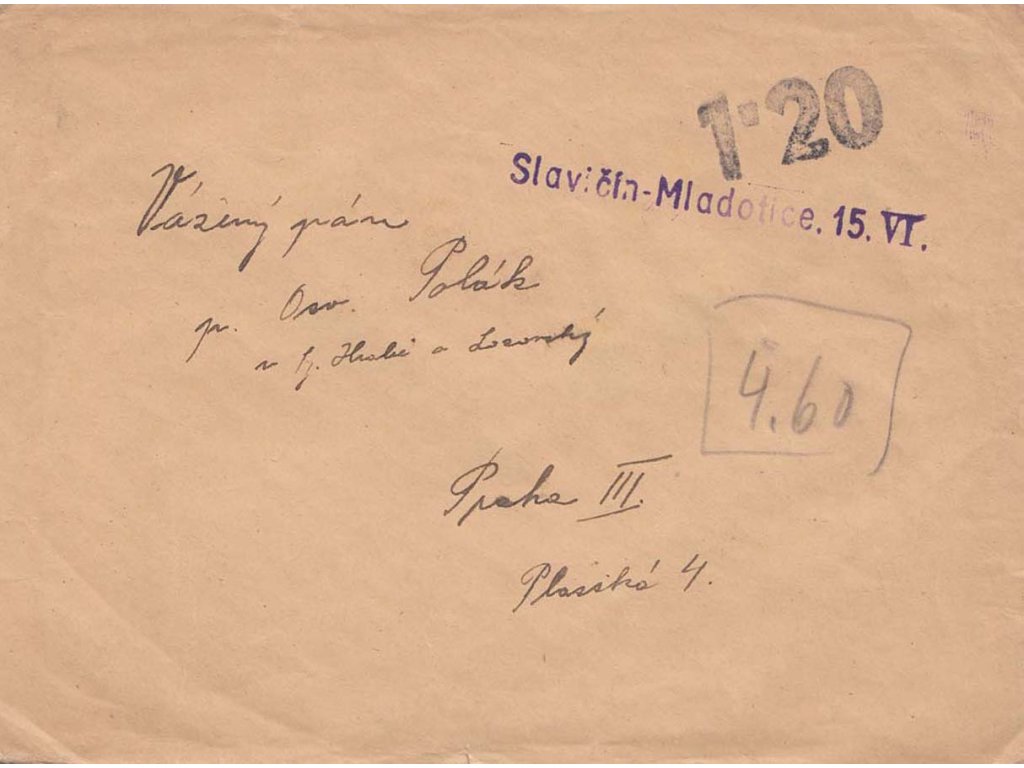 1·20
Slavičín-Mladotice. 15. VI.
Vážený pán
p. Osv. Polák
4.60
Praha III.
Plasská 4.